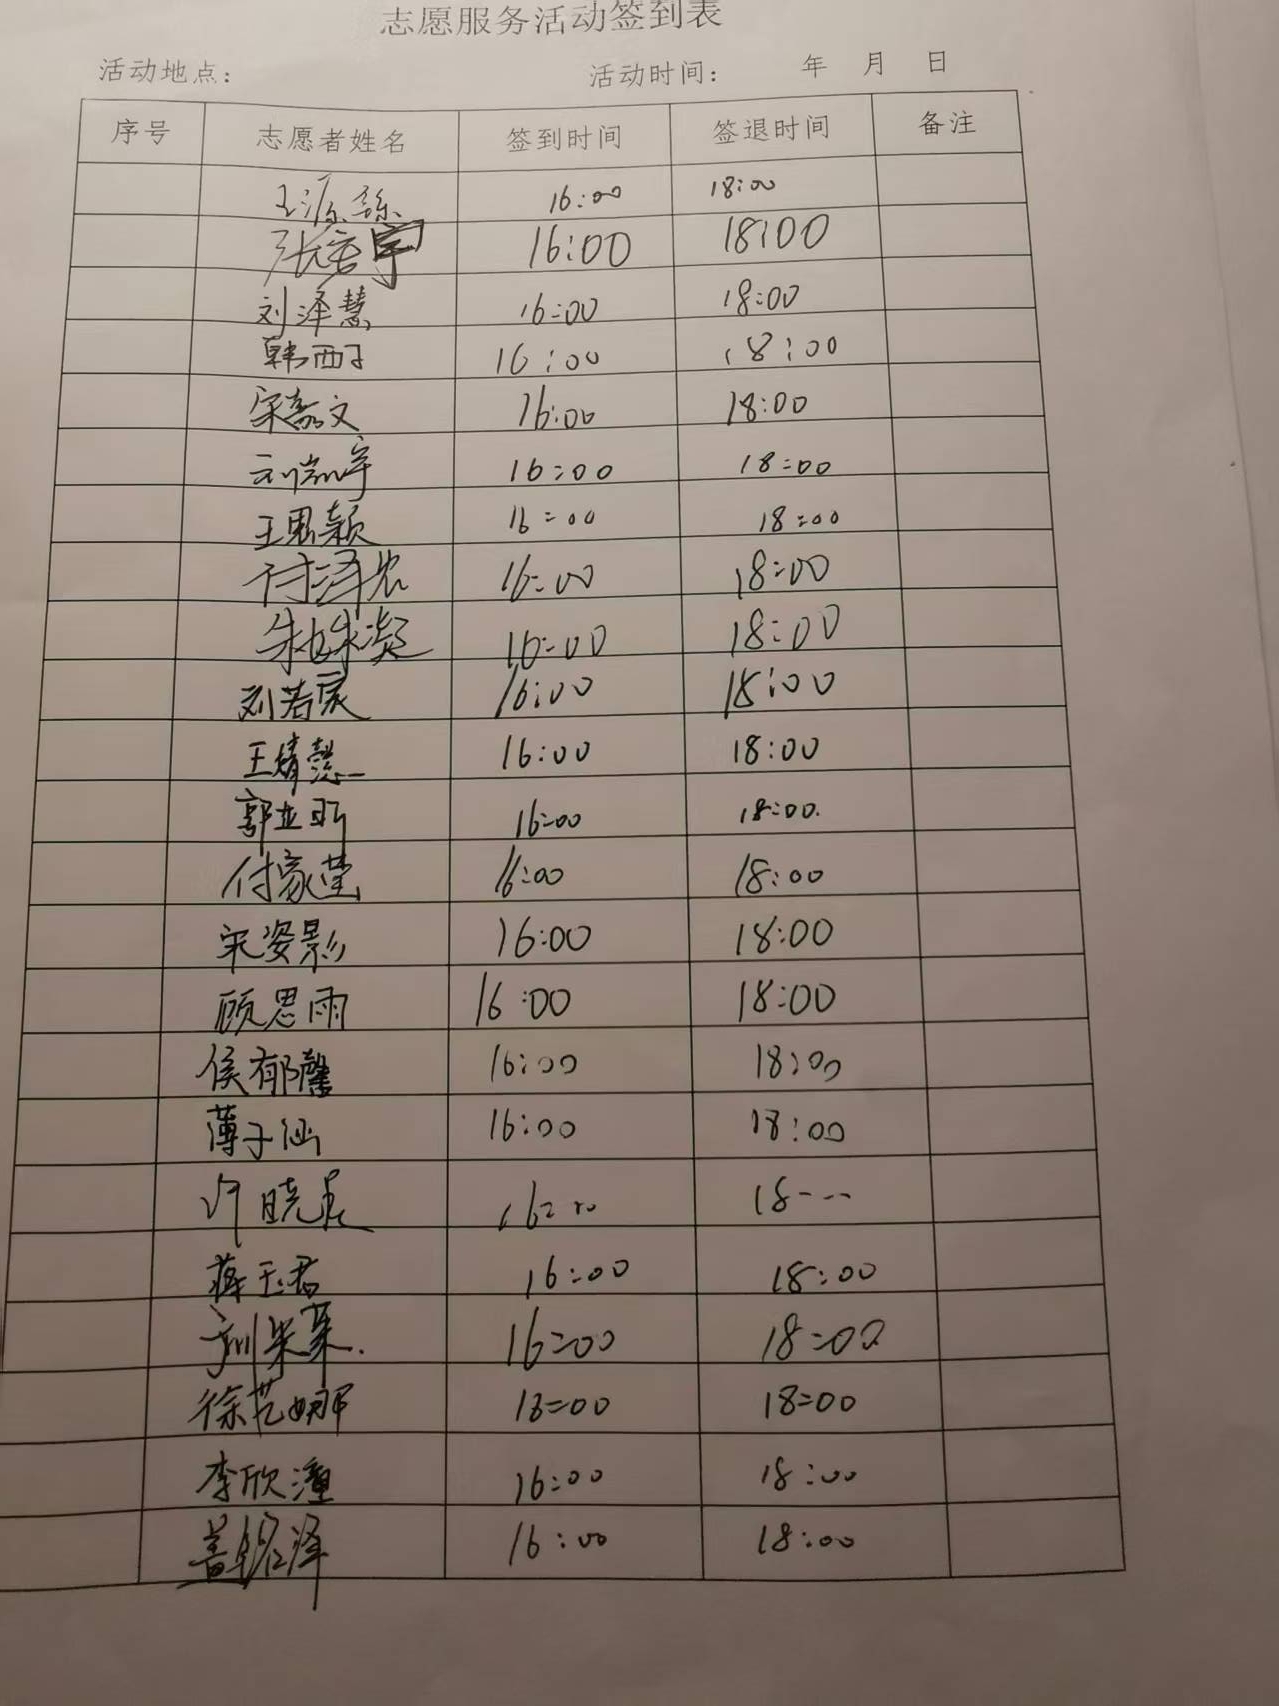 志愿服务活动签到表
活动地点： 活动时间： 年 月 日
序号 志愿者姓名 签到时间 签退时间 备注
王源 16:00 18:00
张宇 16:00 18:00
刘泽慧 16:00 18:00
韩西子 16:00 18:00
宋嘉文 16:00 18:00
刘凯宇 16:00 18:00
王思颖 16:00 18:00
付泽 16:00 18:00
朱姝凝 16:00 18:00
刘若 16:00 18:00
王婧懿 16:00 18:00
郭亚昕 16:00 18:00
付家莹 16:00 18:00
宋姿影 16:00 18:00
顾思雨 16:00 18:00
侯郁馨 16:00 18:00
薄子涵 16:00 18:00
许晓晨 16:00 18---
蒋玉君 16:00 18:00
刘荣荣. 16:00 18:00
徐艺娜 18:00 18:00
李欣潼 16:00 18:00
盖铭泽 16:00 18:00